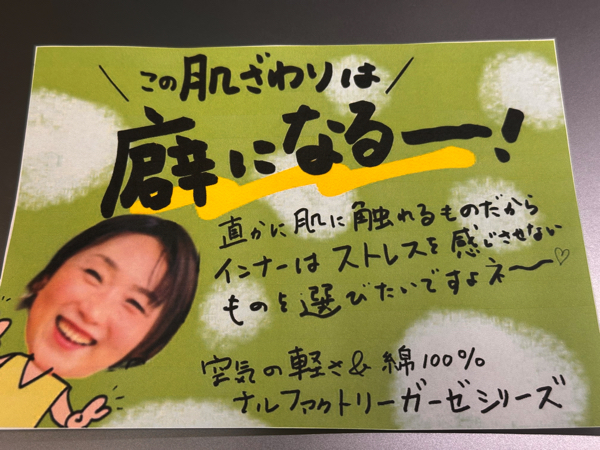 \この肌ざわりは/
癖になるー!
直かに肌に触れるものだから
インナーはストレスを感じさせない
ものを選びたいですよネ〜♡
空気の軽さ&綿100%
ナルファクトリーガーゼシリーズ